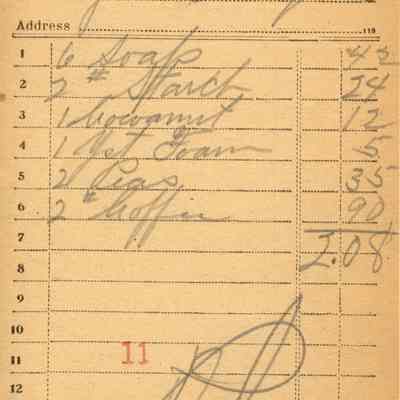 Address
1 6 Soap 42
2 2 # Starch 24
3 1 Cocoanut 12
4 1 Yst Foam 5
5 2 Peas 35
6 2 # Coffee 90
7 2.08
8
9
10
11 11
12